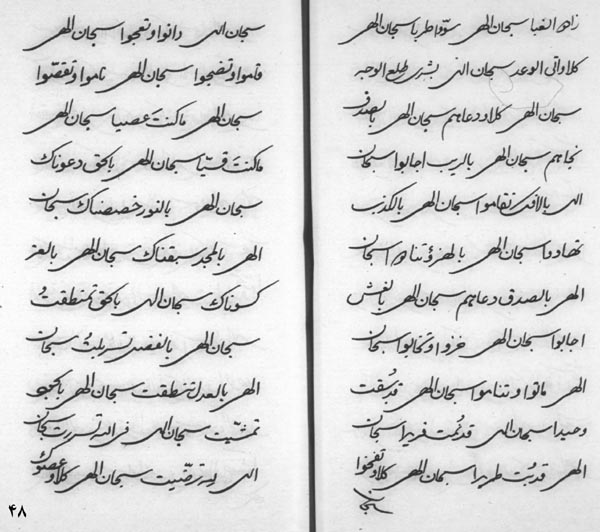 زاهد الغبا سبحان الهی سوّوا طربا سبحان الهی
کلا و اتی الوعد سبحان الهی بشری طلع الوجه
سبحان الهی کلا و دعاهم سبحان الهی بالصدق
نجاهم سبحان الهی بالریب اجابوا سبحان
الهی بالافک تقاموا سبحان الهی بالکذب
تهادوا سبحان الهی بالهزؤ تناهوا سبحان
الهی بالصدق دعاهم سبحان الهی بالغش
اجابوا سبحان الهی خزوا و تخابوا سبحان
الهی ماتوا و تناهوا سبحان الهی قد بقیت
وحیدا سبحان الهی قد نمت فریدا سبحان
الهی قد بُت طریدا سبحان الهی کلا و تفجوا
سبحان
سبحان الهی دانوا و تعجبوا سبحان الهی
قاموا و تضجوا سبحان الهی ناموا و تقضّوا
سبحان الهی ما کنتَ عصیا سبحان الهی
ما کنتَ قسیّا سبحان الهی بالحق دعوناک
سبحان الهی بالنور خصصناک سبحان
الهی بالمجد سبقناک سبحان الهی بالعز
کسوناک سبحان الهی بالحق تمنطقتُ
سبحان الهی بالفضل تسربلتُ سبحان
الهی بالعدل تنطقت سبحان الهی بالحب
تمشّیت سبحان الهی فی الله تسررت سبحان
الهی لله ترضّیت سبحان الهی کلا و عصوک
۴۸